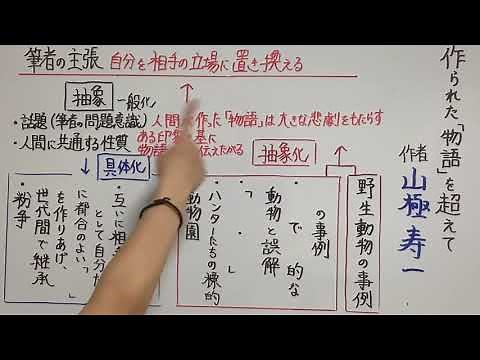 作られた「物語」を超えて
作者 山極寿一
筆者の主張 自分を相手の立場に置き換える
抽象 一般化
・話題(筆者の問題意識) 人間が作った「物語」は大きな悲劇をもたらす
・人間に共通する性質 ある印象を基に
物語 伝えたがる
抽象化
具体化
野生動物の事例
の事例
で 的な
動物と誤解
・ハンターたちの標的
動物園
・互いに相手
として自分
に都合のよい「
を作りあげ、
世代間で継承
・紛争